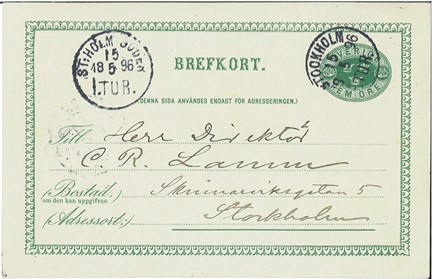 BREFKORT.
(DENNA SIDA ANVÄNDES ENDAST FÖR ADRESSERINGEN.)
ST:HOLM SÖDER
15
18 5 96
1.TUR.
STOCKHOLM
15
5
96
TUR.
SVERIGE
FEM ÖRE
Till Herr Direktör
C. R. Lamm
(Bostad)
(om den kan uppgifvas)
5
(Adressort:) Stockholm